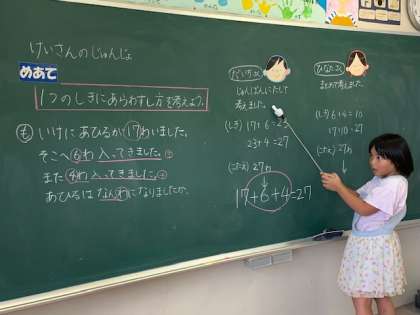 けいさんのじゅんじょ
めあて
1つのしきにあらわすし方を考えよう。
も いけにあひるが17わいました。
そこへ6わ入ってきました。
また4わ入ってきました。
あひるはなんわになりましたか。
だいちさん
じゅんばんにたして
考えました。
(しき) 17+6=23
23+4=27
(こたえ) 27わ
17+6+4=27
ひなたさん
まとめて考えました。
(しき) 6+4=10
17+10=27
(こたえ) 27わ